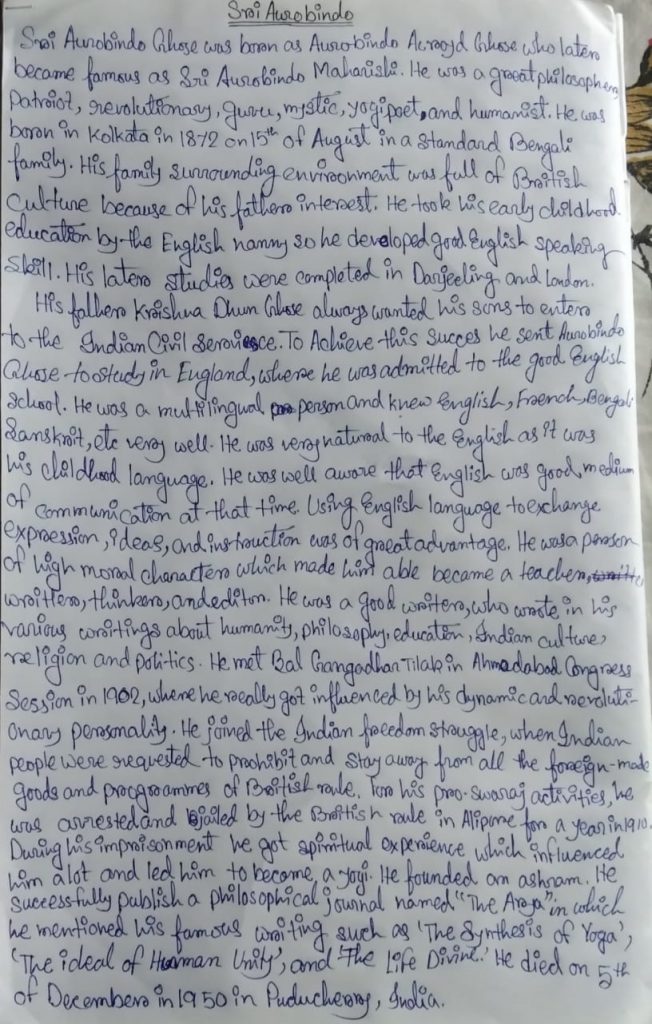 Sri Aurobindo
Sri Aurobindo Ghose was born as Aurobindo Acroyd Ghose who later
became famous as Sri Aurobindo Maharishi. He was a great philosopher,
Patriot, revolutionary, guru, mystic, yogi poet, and humanist. He was
born in Kolkata in 1872 on 15th of August in a standard Bengali
family. His family surrounding environment was full of British
Culture because of his fathers interest. He took his early childhood
education by the English nanny so he developed good English speaking
Skill. His later studies were completed in Darjeeling and London.
His father Krishna Dhun Ghose always wanted his sons to enter
to the Indian Civil Service. To Achieve this Succes he sent Aurobindo
Ghose to study in England, where he was admitted to the good English
School. He was a multilingual person and knew English, French, Bengali
Sanskrit, etc very well. He was very natural to the English as it was
his childhood language. He was well aware that English was good medium
of communication at that time. Using English language to exchange
expression, ideas, and instruction was of great advantage. He was a person
of high moral character which made him able became a teacher,
writer, thinker, and editor. He was a good writer, who wrote in his
various writings about humanity, philosophy, education, Indian culture,
religion and politics. He met Bal Gangadhar Tilak in Ahmadabad Congress
Session in 1902, where he really got influenced by his dynamic and revoluti-
onary personality. He joined the Indian freedom struggle, when Indian
people were requested to prohibit and stay away from all the foreign-made
goods and programmes of British rule. For his pro-swaraj activities, he
was arrested and jailed by the British rule in Alipore for a year in 1910.
During his imprisonment he got spiritual experience which influenced
him a lot and led him to become a yogi. He founded an ashram. He
successfully publish a philosophical journal named "The Arya" in which
he mentioned his famous writing such as 'The Synthesis of Yoga',
'The ideal of Human Unity', and 'The Life Divine.' He died on 5th
of December in 1950 in Puducherry, India.